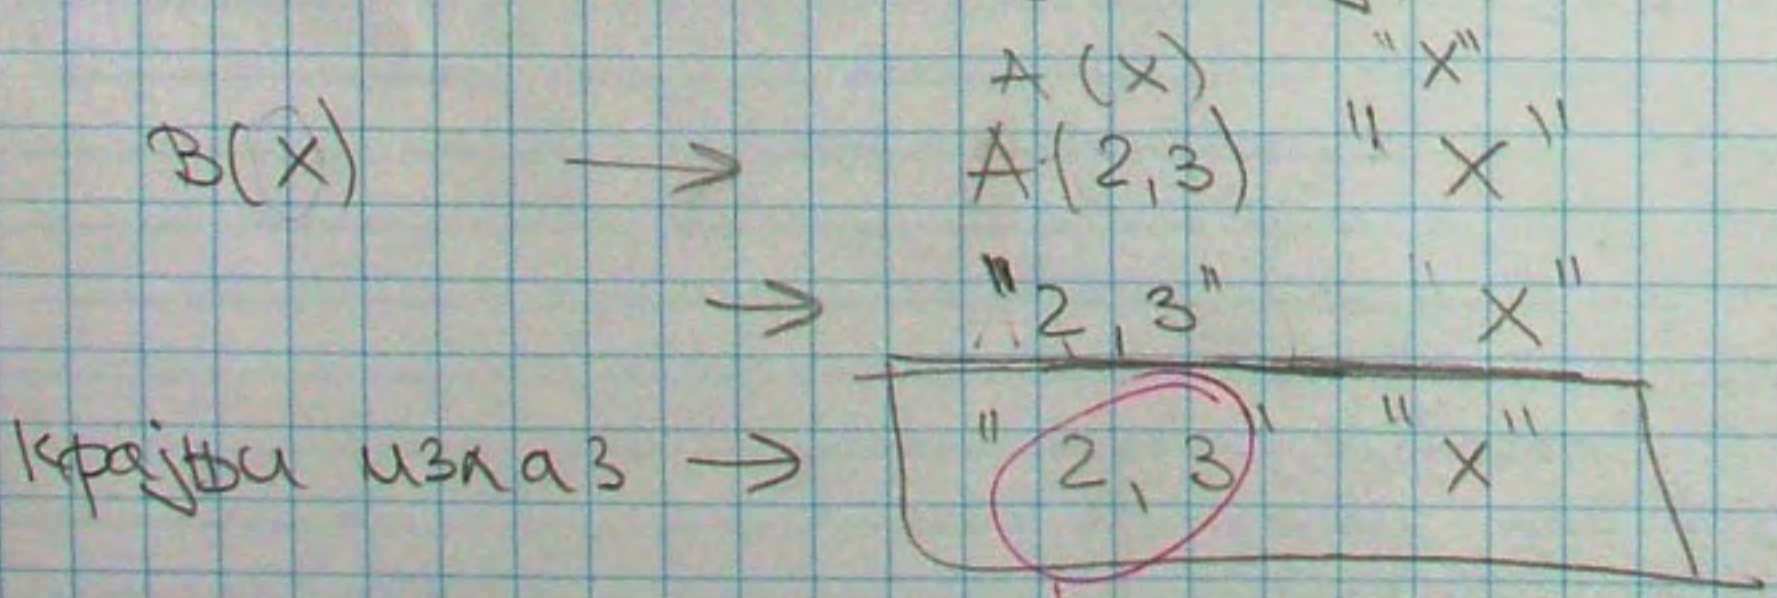 A(X) "X"
B(X) → A(2,3) "X"
→ "2,3" "X"
Крајњи излаз → "2,3" "X"